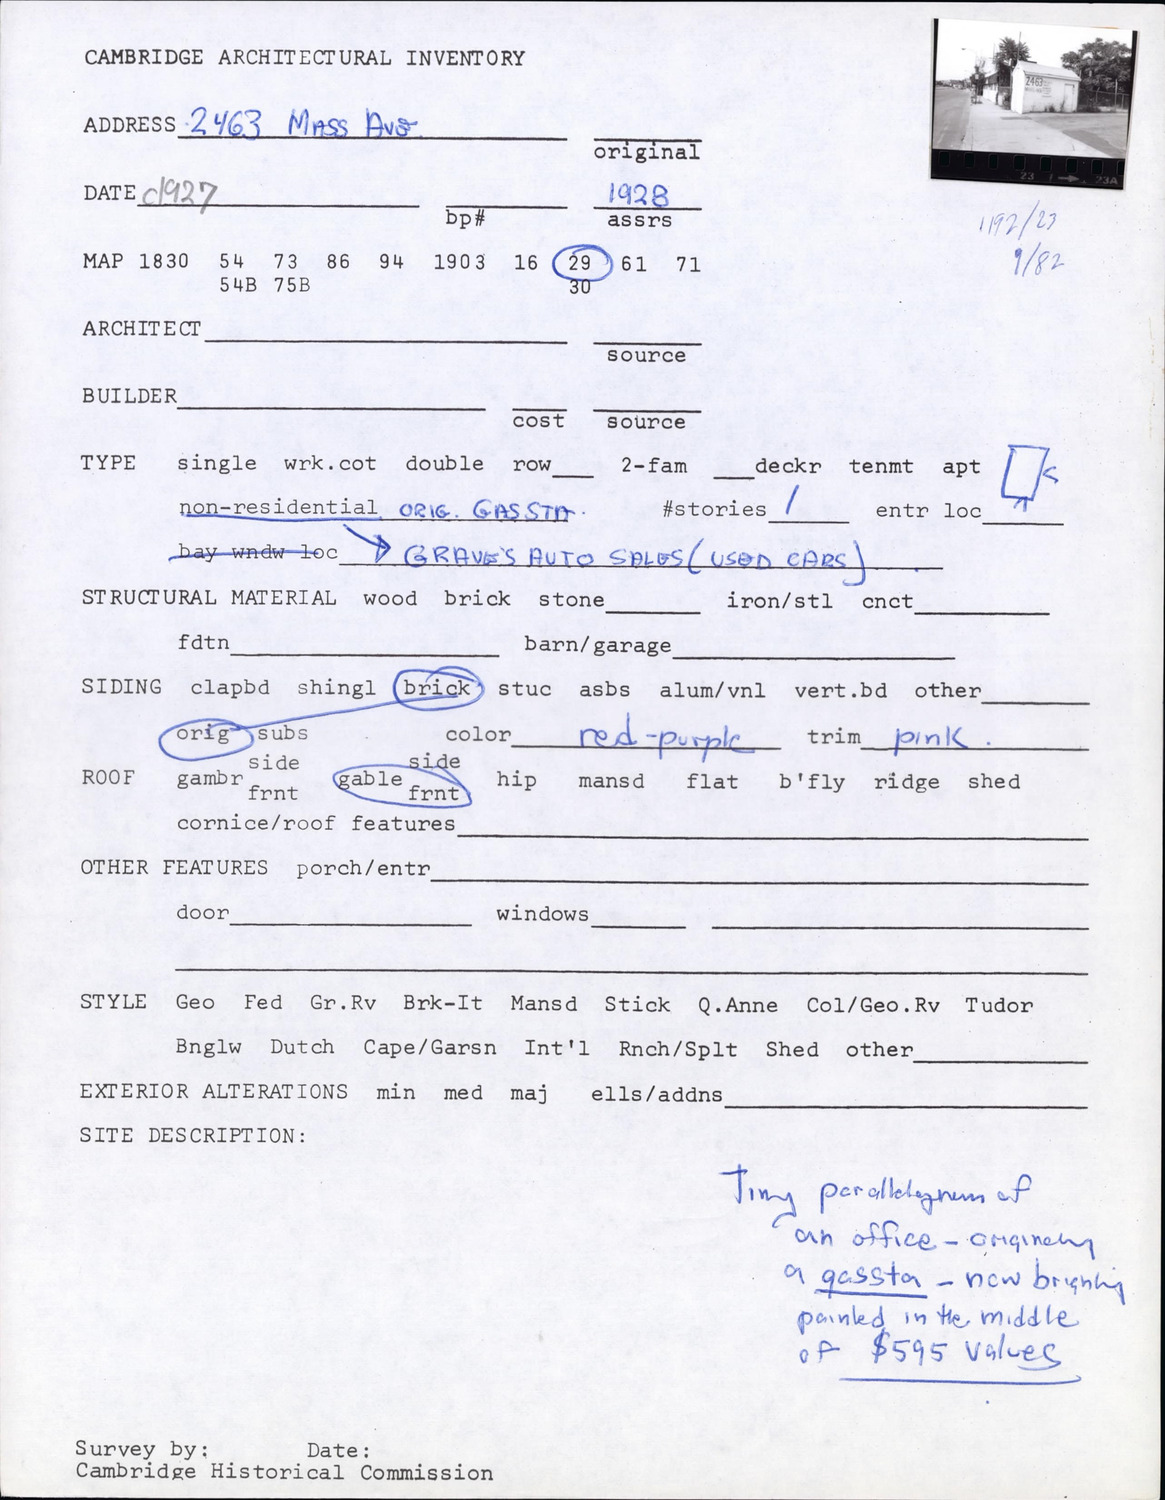 CAMBRIDGE ARCHITECTURAL INVENTORY
2463
23 23A
ADDRESS 2463 MASS AVE
original
DATE c1927 1928
bp# assrs
1192/23
9/82
MAP 1830 54 73 86 94 1903 16 29 61 71
54B 75B 30
ARCHITECT
source
BUILDER
cost source
TYPE single wrk.cot double row 2-fam deckr tenmt apt
non-residential ORIG. GAS STA. #stories 1 entr loc
bay wndw loc GRAVE'S AUTO SALES (USED CARS)
STRUCTURAL MATERIAL wood brick stone iron/stl cnct
fdtn barn/garage
SIDING clapbd shingl brick stuc asbs alum/vnl vert.bd other
orig subs color red-purple trim pink.
side side
ROOF gambr gable hip mansd flat b'fly ridge shed
frnt frnt
cornice/roof features
OTHER FEATURES porch/entr
door windows
STYLE Geo Fed Gr.Rv Brk-It Mansd Stick Q.Anne Col/Geo.Rv Tudor
Bnglw Dutch Cape/Garsn Int'l Rnch/Splt Shed other
EXTERIOR ALTERATIONS min med maj ells/addns
SITE DESCRIPTION:
Tiny parallelogram of
an office - originally
a gas sta - now brightly
painted in the middle
of $595 values
Survey by: Date:
Cambridge Historical Commission